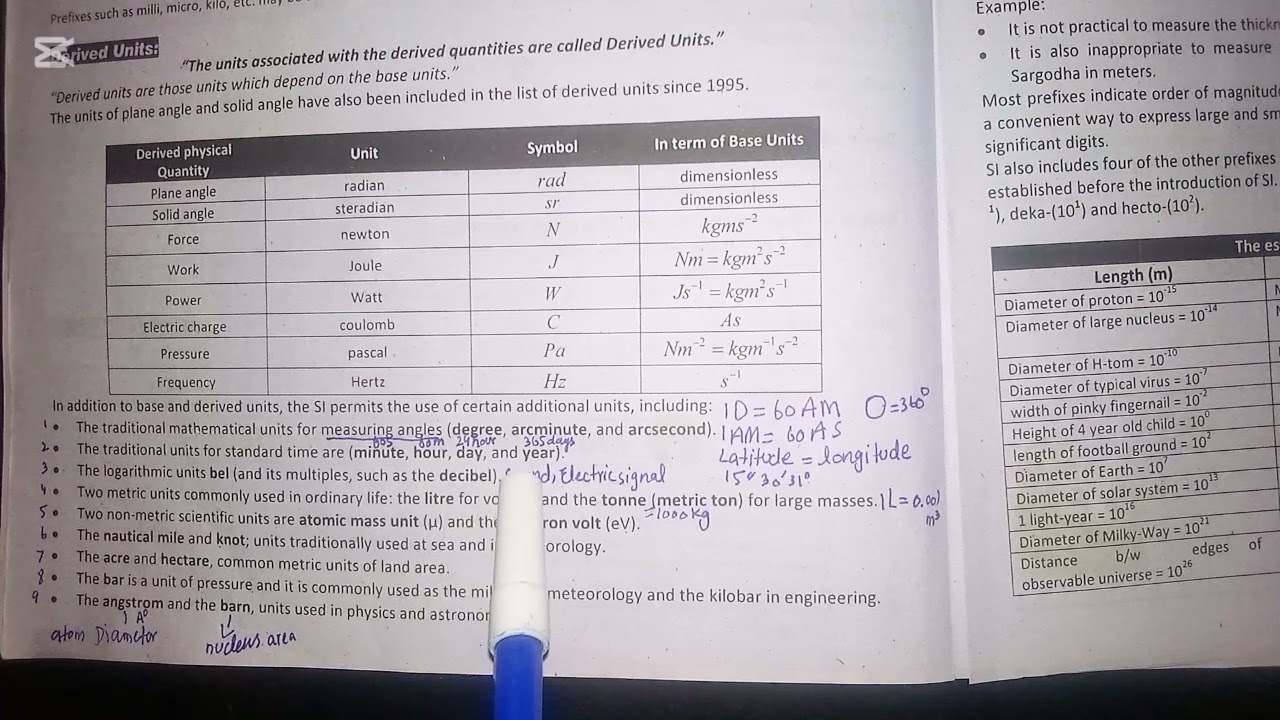 Prefixes such as milli, micro, kilo, etc. may
Derived Units:
"The units associated with the derived quantities are called Derived Units."
"Derived units are those units which depend on the base units."
The units of plane angle and solid angle have also been included in the list of derived units since 1995.
Derived physical Quantity Unit Symbol In term of Base Units
Plane angle radian rad dimensionless
Solid angle steradian sr dimensionless
Force newton N kgms⁻²
Work Joule J Nm = kgm²s⁻²
Power Watt W Js⁻¹ = kgm²s⁻¹
Electric charge coulomb C As
Pressure pascal Pa Nm⁻² = kgm⁻¹s⁻²
Frequency Hertz Hz s⁻¹
In addition to base and derived units, the SI permits the use of certain additional units, including: 1D = 60AM O=360°
1 • The traditional mathematical units for measuring angles (degree, arcminute, and arcsecond). 1AM = 60AS
60S 60m 24hour 365days
2 • The traditional units for standard time are (minute, hour, day, and year). Latitude = longitude
3 • The logarithmic units bel (and its multiples, such as the decibel). Electric signal 15° 30' 31"
4 • Two metric units commonly used in ordinary life: the litre for and the tonne (metric ton) for large masses. 1L = 0.001 m³
=1000kg
5 • Two non-metric scientific units are atomic mass unit (μ) and the ron volt (eV).
6 • The nautical mile and knot; units traditionally used at sea and orology.
7 • The acre and hectare, common metric units of land area.
8 • The bar is a unit of pressure and it is commonly used as the meteorology and the kilobar in engineering.
9 • The angstrom and the barn, units used in physics and astrono
1 A°
atom Diametor nucleus area
Example:
• It is not practical to measure the
• It is also inappropriate to measure
Sargodha in meters.
Most prefixes indicate order of
a convenient way to express large and
significant digits.
SI also includes four of the other prefixes
established before the introduction of SI.
¹), deka-(10¹) and hecto-(10²).
The
Length (m)
Diameter of proton = 10⁻¹⁵
Diameter of large nucleus = 10⁻¹⁴
Diameter of H-tom = 10⁻¹⁰
Diameter of typical virus = 10⁻⁷
width of pinky fingernail = 10⁻²
Height of 4 year old child = 10⁰
length of football ground = 10²
Diameter of Earth = 10⁷
Diameter of solar system = 10¹³
1 light-year = 10¹⁶
Diameter of Milky-Way = 10²¹
Distance b/w edges of
observable universe = 10²⁶